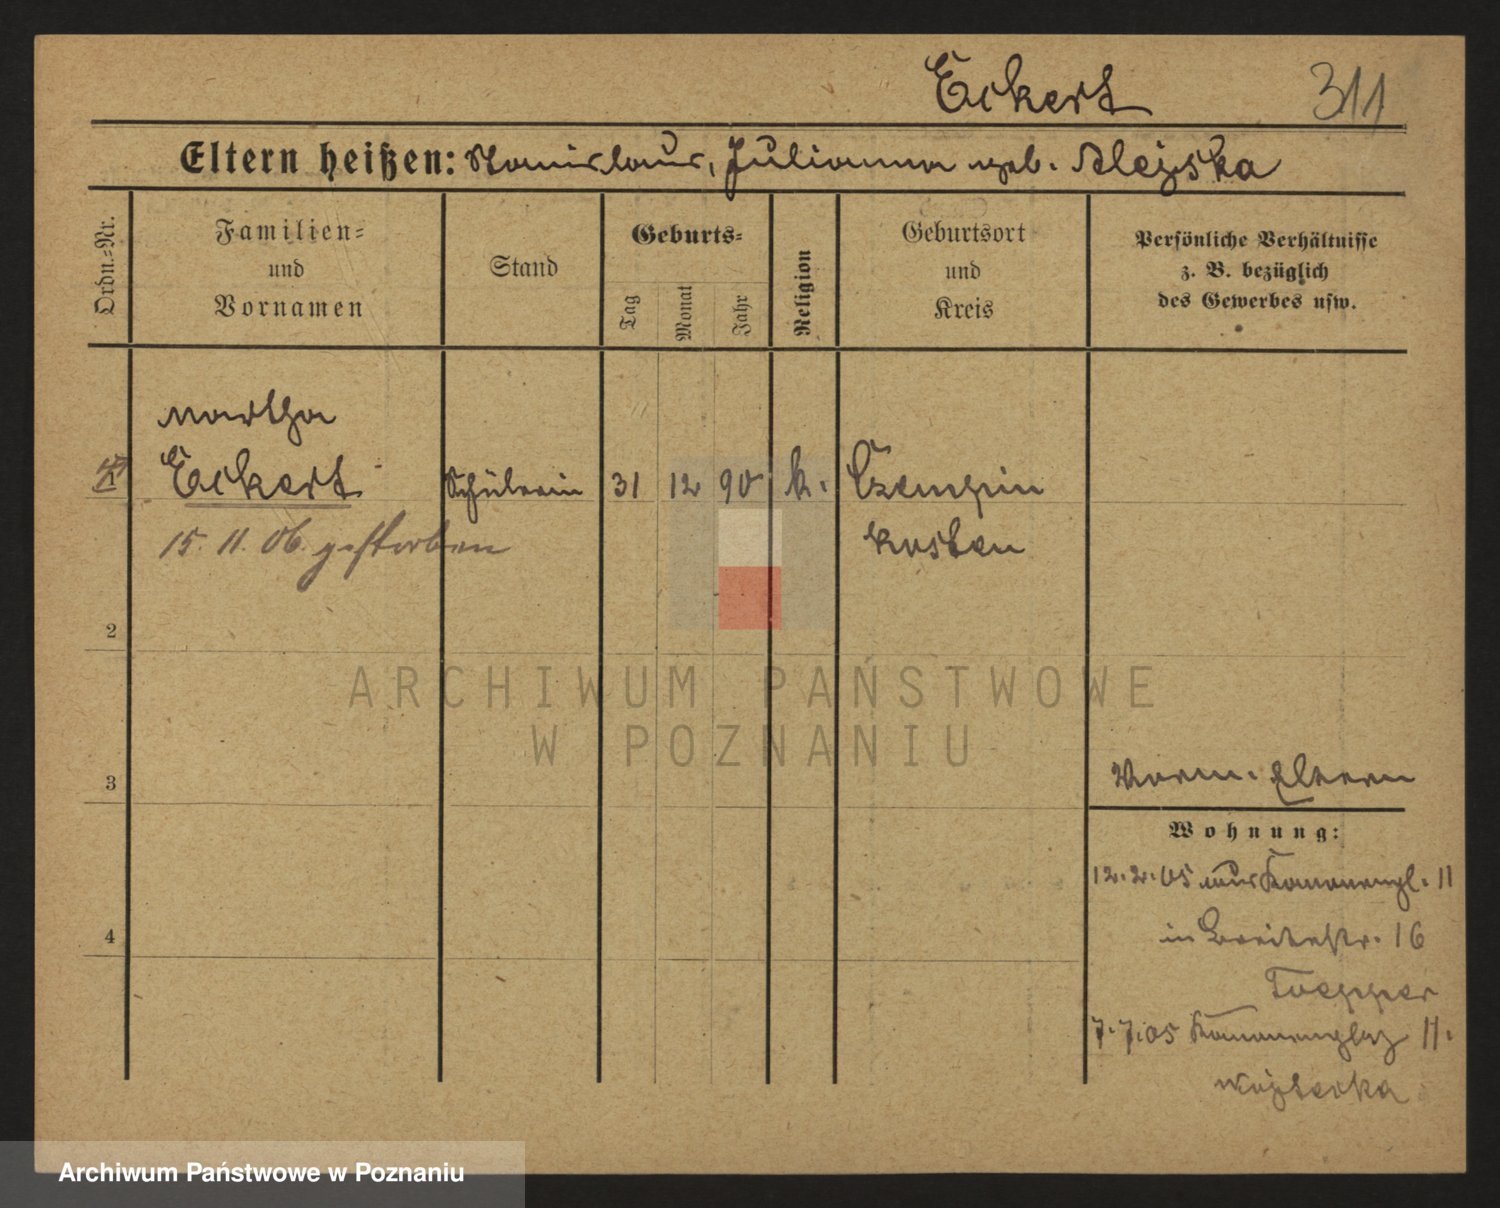 Eckert 311
Eltern heißen: Stanislaus, Julianna geb. Alejska
Ordn.-Nr.
Familien-
und
Vornamen
Stand
Geburts-
Tag
Monat
Jahr
Religion
Geburtsort
und
Kreis
Persönliche Verhältnisse
z. B. bezüglich
des Gewerbes usw.
Martha
1 Eckert Schülerin 31 12 90 k. Czempin
15. 11. 06. gestorben Kosten
2
ARCHIWUM PAŃSTWOWE
W POZNANIU
3
Vorm. Eltern
Wohnung:
12.2.05 aus Kanonenpl. 11
4
in Breitestr. 16
Toepper
7.7.05 Kanonenplatz 11.
Archiwum Państwowe w Poznaniu